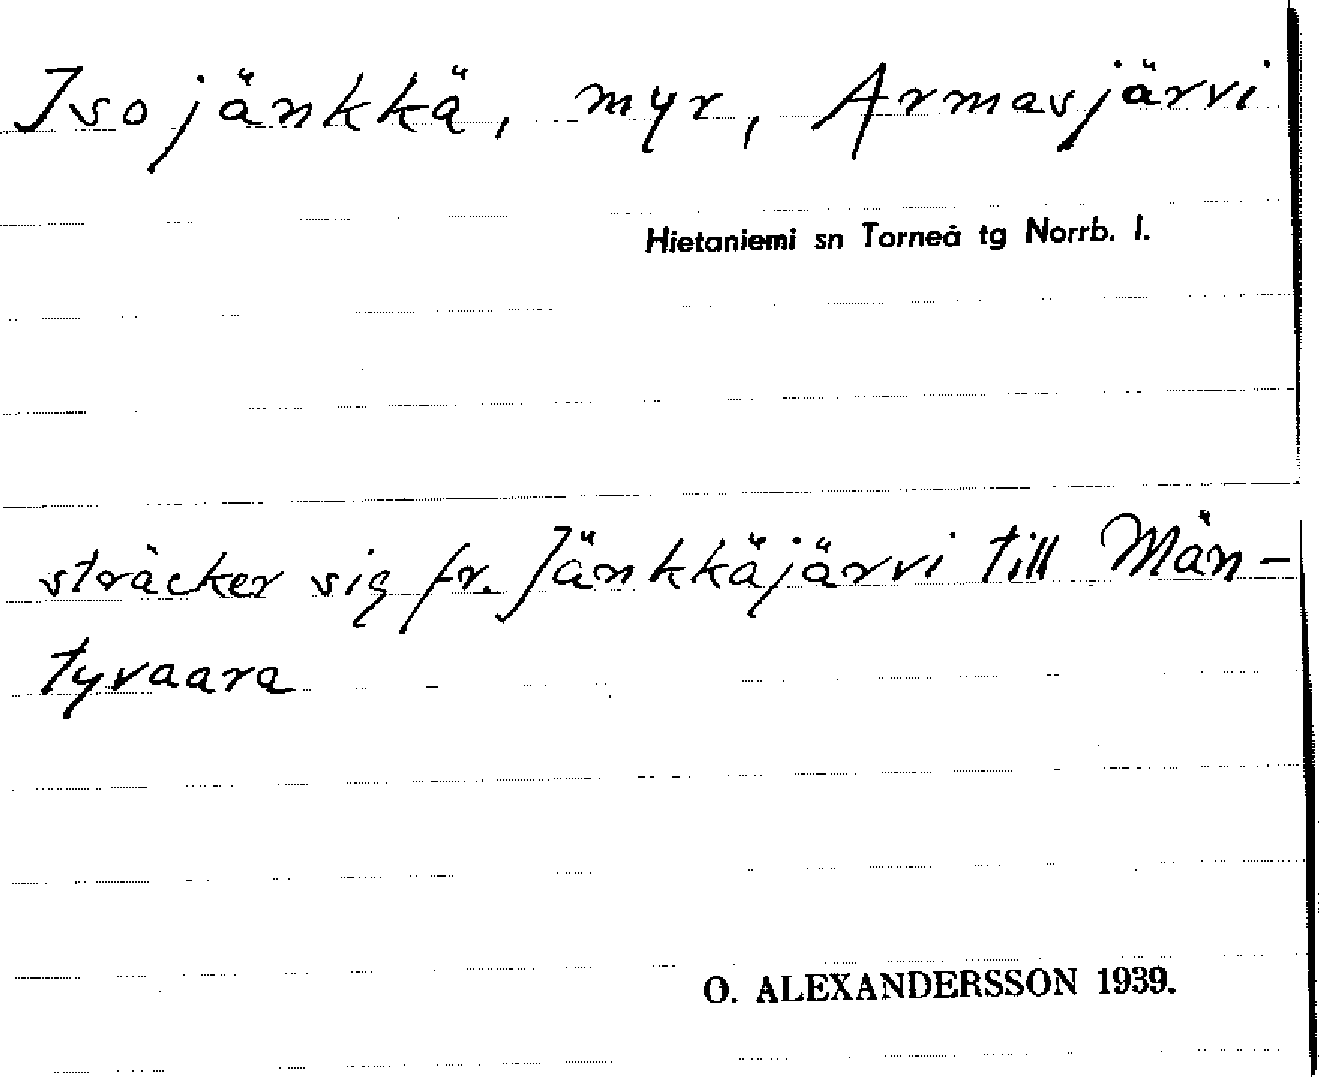 Isojänkkä, myr, Armasjärvi
Hietaniemi sn Torneå tg Norrb. l.
sträcker sig fr. Jänkkäjärvi till Män-
tyvaara
O. ALEXANDERSSON 1939.